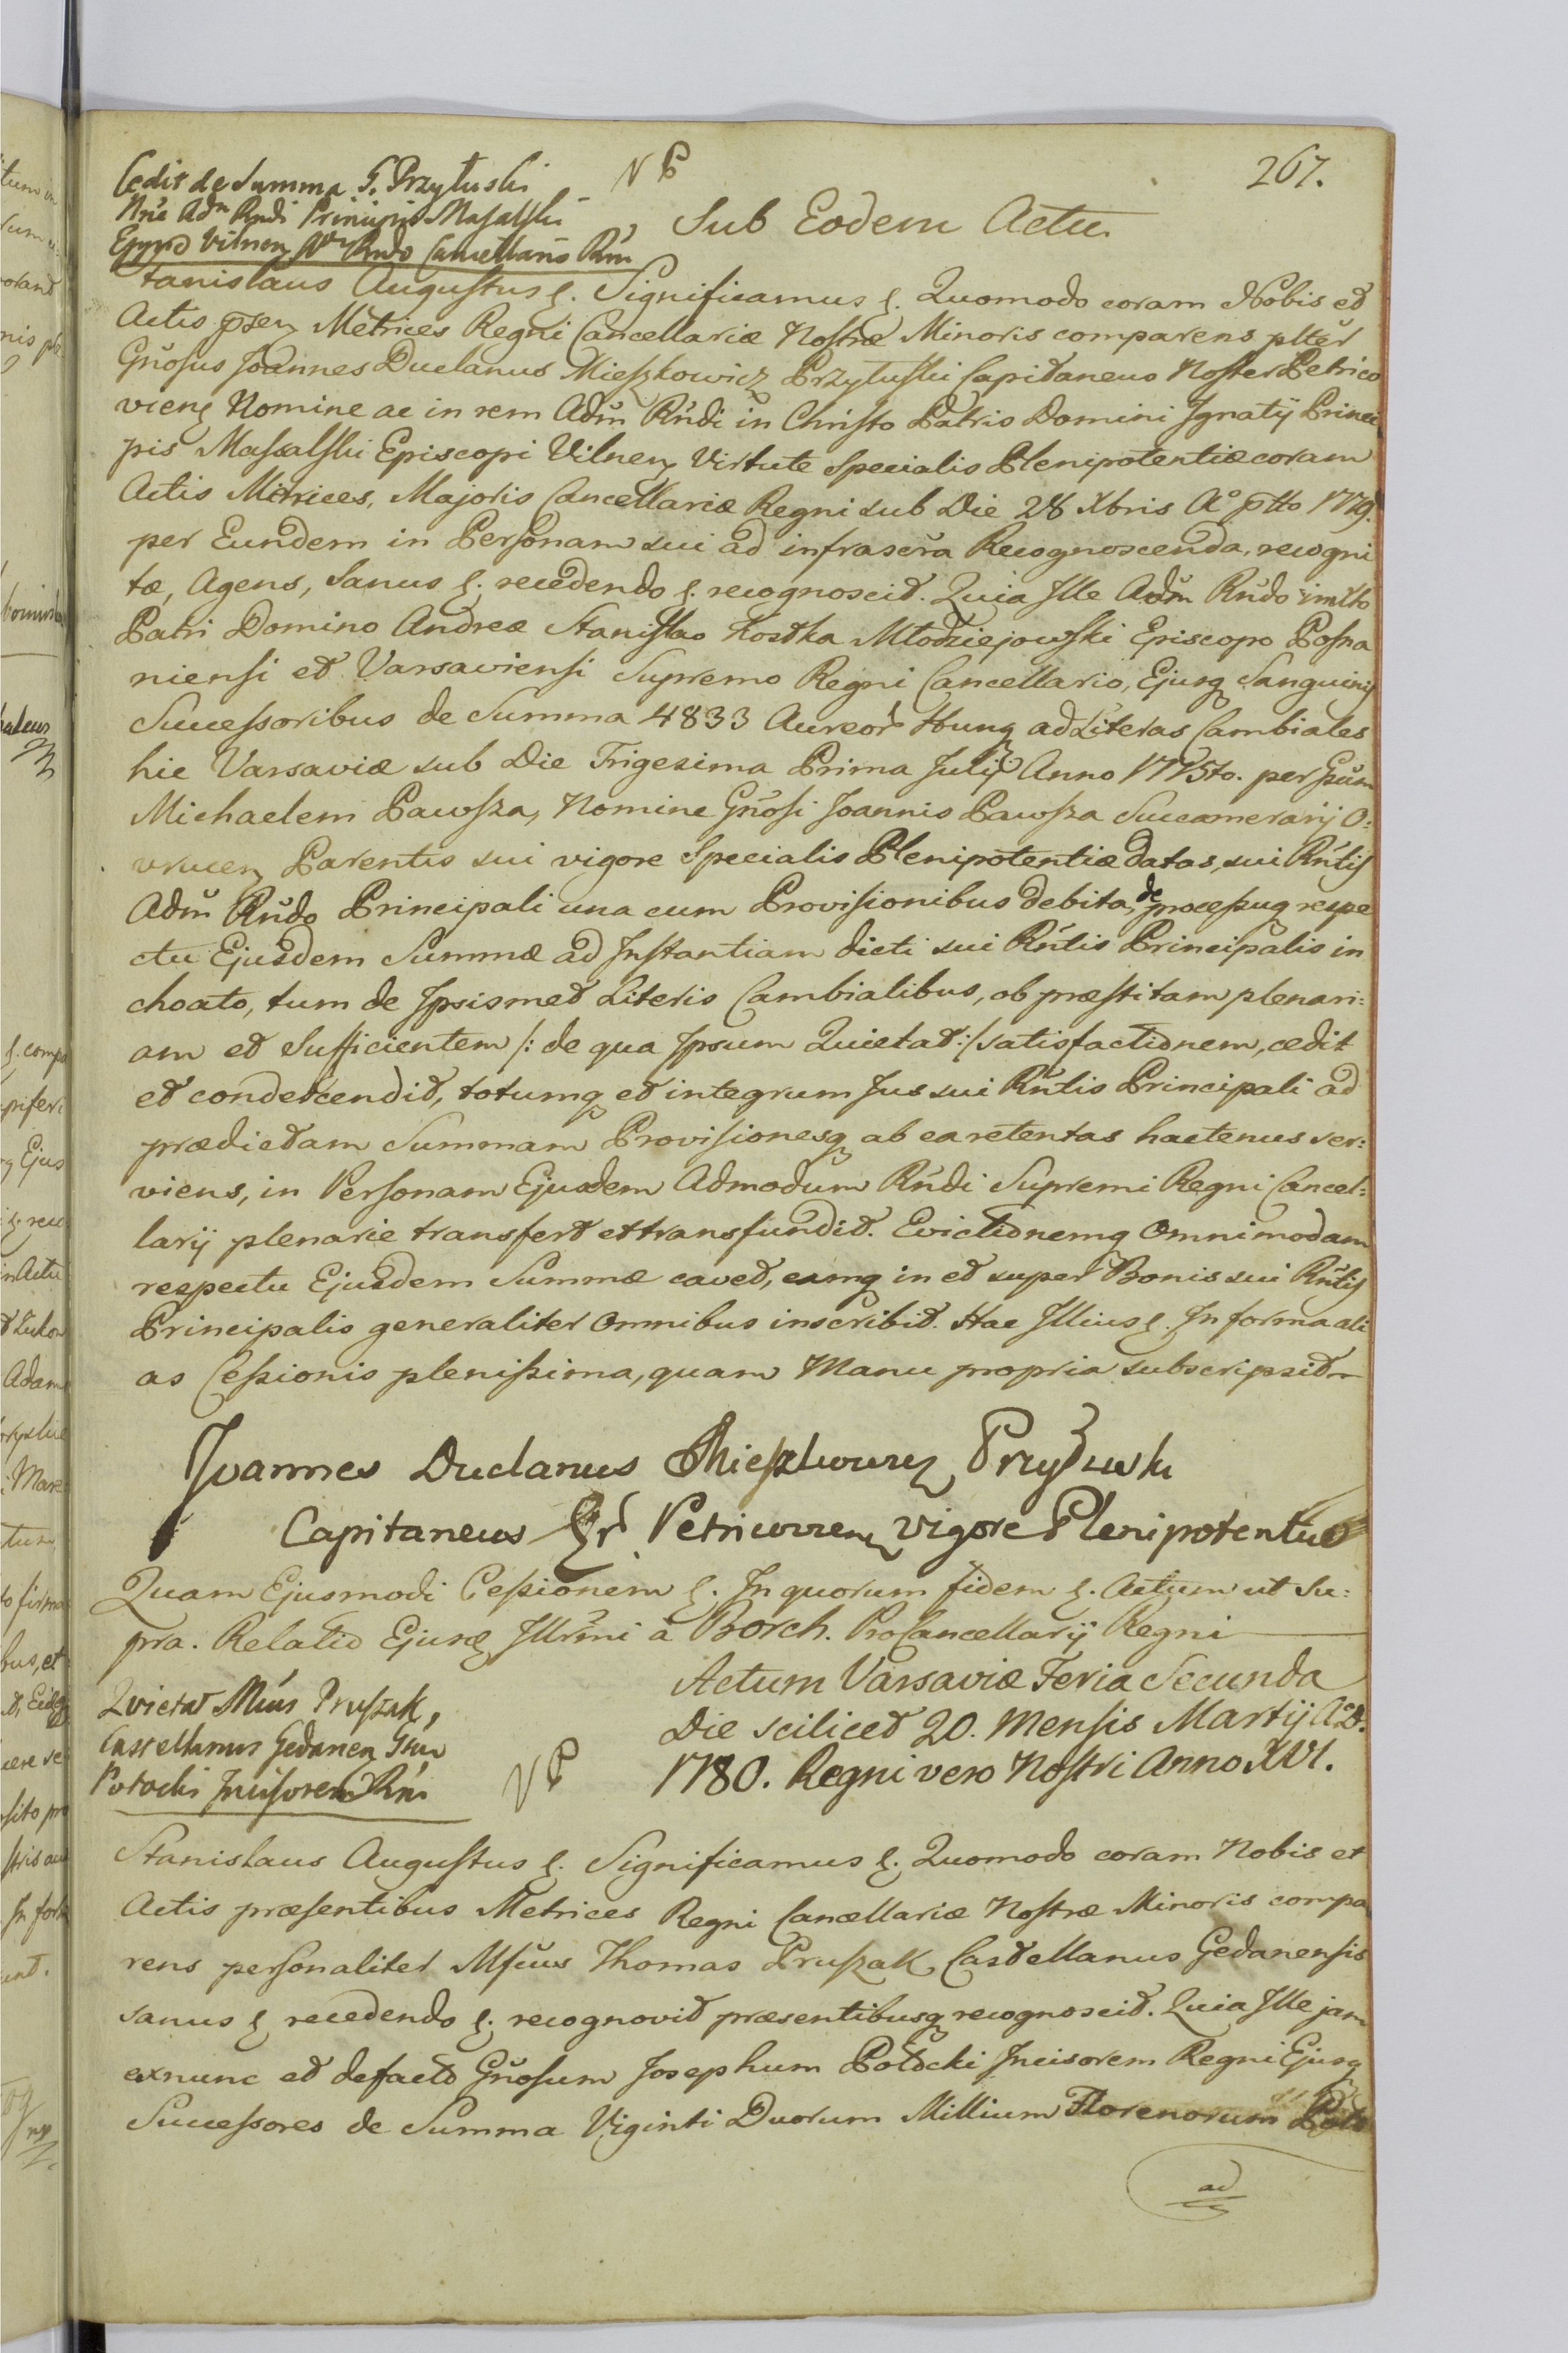 267.
Cedit de Summa G. Przyłuski
Nñe Adm Rndi Principis Masalski
Eppō Vilnen, Adm Rndo Cancellario Rni
NP
Sub Eodem Actu
Stanislaus Augustus &. Significamus &. Quomodo coram Nobis et
Actis pñsen Metrices Regni Cancellariæ Nostræ Minoris comparens plter
Gnosus Joannes Duclanus Mieszkowicz Przyłuski Capitaneus Noster Petrico
viens Nomine ac in rem Adm Rndi in Christo Patris Domini Ignatij Princi
pis Massalski Episcopi Vilnen Virtute Specialis Plenipotentiæ coram
Actis Metrices, Majoris Cancellariæ Regni sub Die 28 Xbris A° ptto 1779.
per Eundem in Personam sui ad infrascra Recognoscenda, recogni
tæ, Agens, Sanus &. recedendo &. recognoscit. Quia Ille Adm Rndo in Xto
Patri Domino Andreæ Stanislao Kostka Młodziejowski Episcopo Posna
niensi et Varsaviensi Supremo Regni Cancellario, Ejusq Sanguinis
Successoribus de Summa 4833 Aureor Hung ad Literas Cambiales
hic Varsaviæ sub Die Trigesima Prima Julij Anno 1775to. per Gsum
Michaelem Pawsza, Nomine Gnosi Joannis Pawsza Succamerarij O:
vrucen Parentis sui vigore Specialis Plenipotentiæ datas, sui Rntis
Adm Rndo Principali una cum Provisionibus debita, de processuq respe
ctu Ejusdem Summæ ad Instantiam dicti sui Rntis Principalis in
choato, tum de Ipsismet Literis Cambialibus, ob præstitam plenari:
am et Sufficientem /: de qua Ipsum Quietat :/ satisfactionem, cedit
et condescendit, totumq et integrum Jus sui Rntis Principali ad
prædictam Summam Provisionesq ab ea retentas hactenus ser:
viens, in Personam Ejusdem Admodum Rndi Supremi Regni Cancel:
larij plenarie transfert et transfundit. Evictionemq Omnimodam
respectu Ejusdem Summæ cavet, eamq in et super Bonis sui Rntis
Principalis generaliter Omnibus inscribit. Hac Illius &. In forma ali
as Cessionis plenissima, quam Manu propria subscripsit
Joannes Duclanus Mieszkowicz Przyłuski
Capitaneus Petricovien vigore Plenipotentiæ
Quam Ejusmodi Cessionem &. In quorum fidem &. Actum ut Su:
pra. Relatio Ejusd Illrmi a Borch. ProCancellarij Regni
Actum Varsaviæ Feria Secunda
Die scilicet 20. Mensis Martij A°D.
1780. Regni vero Nostri Anno XVI.
Quietat Mcus Pruszak,
Castellanus Gedanen Gsum
Potocki Incisorem Rni
NP
Stanislaus Augustus &. Significamus &. Quomodo coram Nobis et
Actis præsentibus Metrices Regni Cancellariæ Nostræ Minoris compa
rens personaliter Mfcus Thomas Pruszak, Castellanus Gedanensis
sanus & recedendo &. recognovit præsentibusq recognoscit. Quia Ille jam
exnunc et defacto Gnosum Josephum Potocki Incisorem Regni Ejusq
Successores de Summa Viginti Duorum Millium Florenorum Polo
ad